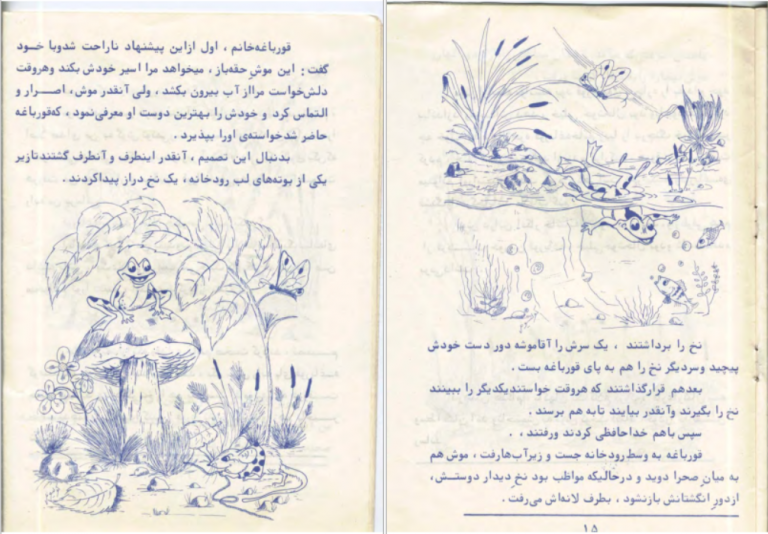 قورباغه‌خانم ، اول ازاین پیشنهاد ناراحت شدوبا خود
گفت : این موش حقه‌باز ، میخواهد مرا اسیر خودش بکند وهروقت
دلش‌خواست مرااز آب بیرون بکشد ، ولی آنقدر موش ، اصرار و
التماس کرد و خودش را بهترین دوست او معرفی‌نمود ، که‌قورباغه
حاضر شد خواسته‌ی اورا بپذیرد .
بدنبال این تصمیم ، آنقدر اینطرف و آنطرف گشتند‌تازیر
یکی از بوته‌های لب رودخانه ، یک نخ دراز پیداکردند .
نخ را برداشتند ، یک سرش را آقاموشه دور دست خودش
پیچید وسردیگر نخ را هم به پای قورباغه بست .
بعدهم قرارگذاشتند که هروقت خواستندیکدیگر را ببینند
نخ را بگیرند وآنقدر بیایند تابه هم برسند .
سپس باهم خداحافظی کردند ورفتند ، .
قورباغه به وسط رودخانه جست و زیرآب‌هارفت ، موش هم
به میان صحرا دوید و درحالیکه مواظب بود نخ دیدار دوستش ،
ازدور انگشتانش بازنشود ، بطرف لانه‌اش می‌رفت .
۱۵